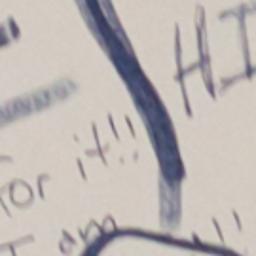 "
HI
for it!!
I am "